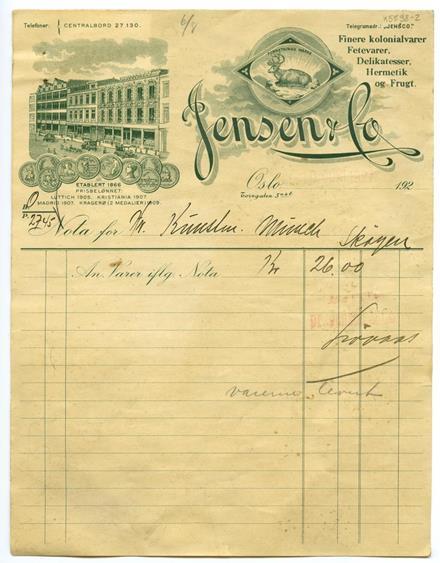 Telefoner: CENTRALBORD 27 130.
6/8
Telegramadr.: „JENSCO.”
Finere kolonialvarer
Fetevarer,
Delikatesser,
Hermetik
og Frugt.
FORRETNINGS MÆRKE
Jensen & Co
ETABLERT 1866
PRISBELØNNET:
LÜTTICH 1905. KRISTIANIA 1907.
MADRID 1907. KRAGERØ (2 MEDALJER) 1909.
Oslo 192
Torvgaten
2745
Nota for Hr. Kunstm. Munch Skøyen
An Varer iflg. Nota Kr 26.00
varerne levert